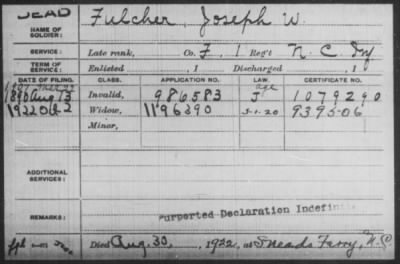 DEAD
NAME OF SOLDIER: Fulcher, Joseph W.
SERVICE: Late rank, Co. F, 1 Reg't N. C. Inf
TERM OF SERVICE: Enlisted , 1 Discharged , 1
DATE OF FILING. CLASS. APPLICATION NO. LAW. CERTIFICATE NO.
age
1890 Aug 13 Invalid, 986583 J 1079290
1922 Oct 2 Widow, 1196390 5-1-20 939506
Minor,
ADDITIONAL SERVICES:
REMARKS: Purported Declaration Indefinite
Died Aug. 30, , 1922, at Sneads Ferry, N.C.